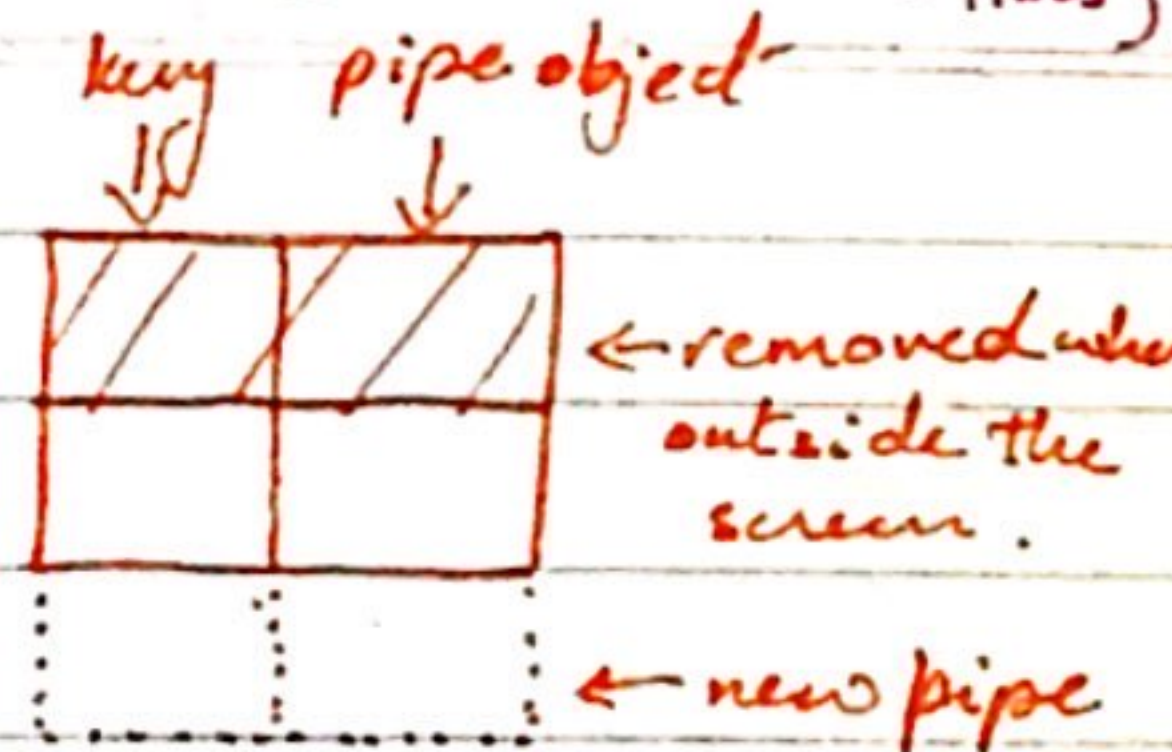 key pipe object
← removed
outside the
screen.
← new pipe